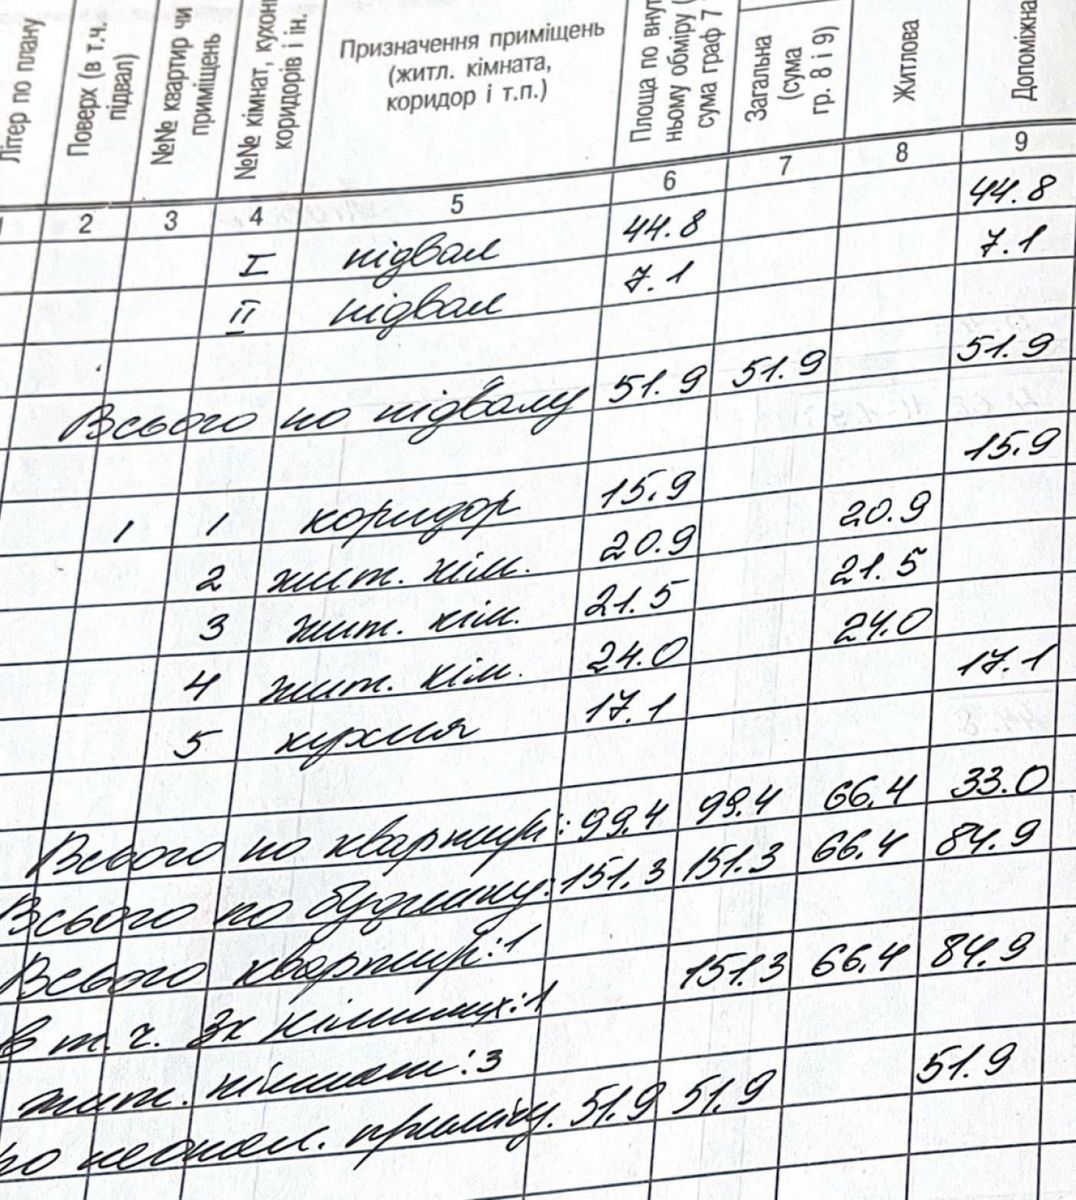 Літер по плану
Поверх (в т.ч. підвал)
№№ квартир чи приміщень
№№ кімнат, кухонь коридорів і ін.
Призначення приміщень
(житл. кімната,
коридор і т.п.)
Площа по внут ньому обміру ( сума граф 7
Загальна (сума гр. 8 і 9)
Житлова
Допоміжна
1 2 3 4 5 6 7 8 9
I підвал 44.8 44.8
II підвал 7.1 7.1
Всього по підвалу 51.9 51.9 51.9
1 1 коридор 15.9 15.9
2 жит. кім. 20.9 20.9
3 жит. кім. 21.5 21.5
4 жит. кім. 24.0 24.0
5 кухня 17.1 17.1
Всього по квартирі: 99.4 99.4 66.4 33.0
Всього по будинку: 151.3 151.3 66.4 84.9
Всього квартир: 1 151.3 66.4 84.9
в т.ч. 3х кімнатних: 1
жит. кімнат: 3
по неосн. приміщ. 51.9 51.9 51.9